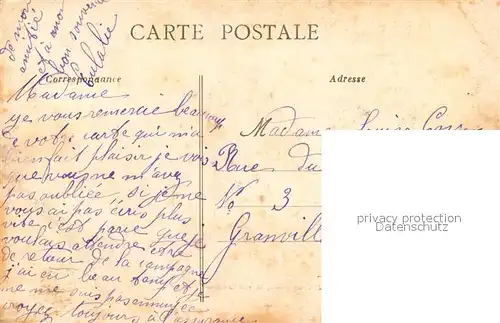 CARTE POSTALE
Correspondance
Adresse
Madame
je vous remercie beaucoup
de votre carte qui m'a
bien fait plaisir je vois
que vous ne m'avez
pas oubliée, si je ne
vous ai pas écris plus
vite c'est parce que je
voulais attendre être
de retour de la campagne
j'ai eu beau temps et
ne me suis pas ennuyée
croyez toujours à l'assurance
de mon
amitié
et à mon
bon souvenir
Eulalie
Madame Louise
Rue du
No 3
Granvill
privacy protection
Datenschutz